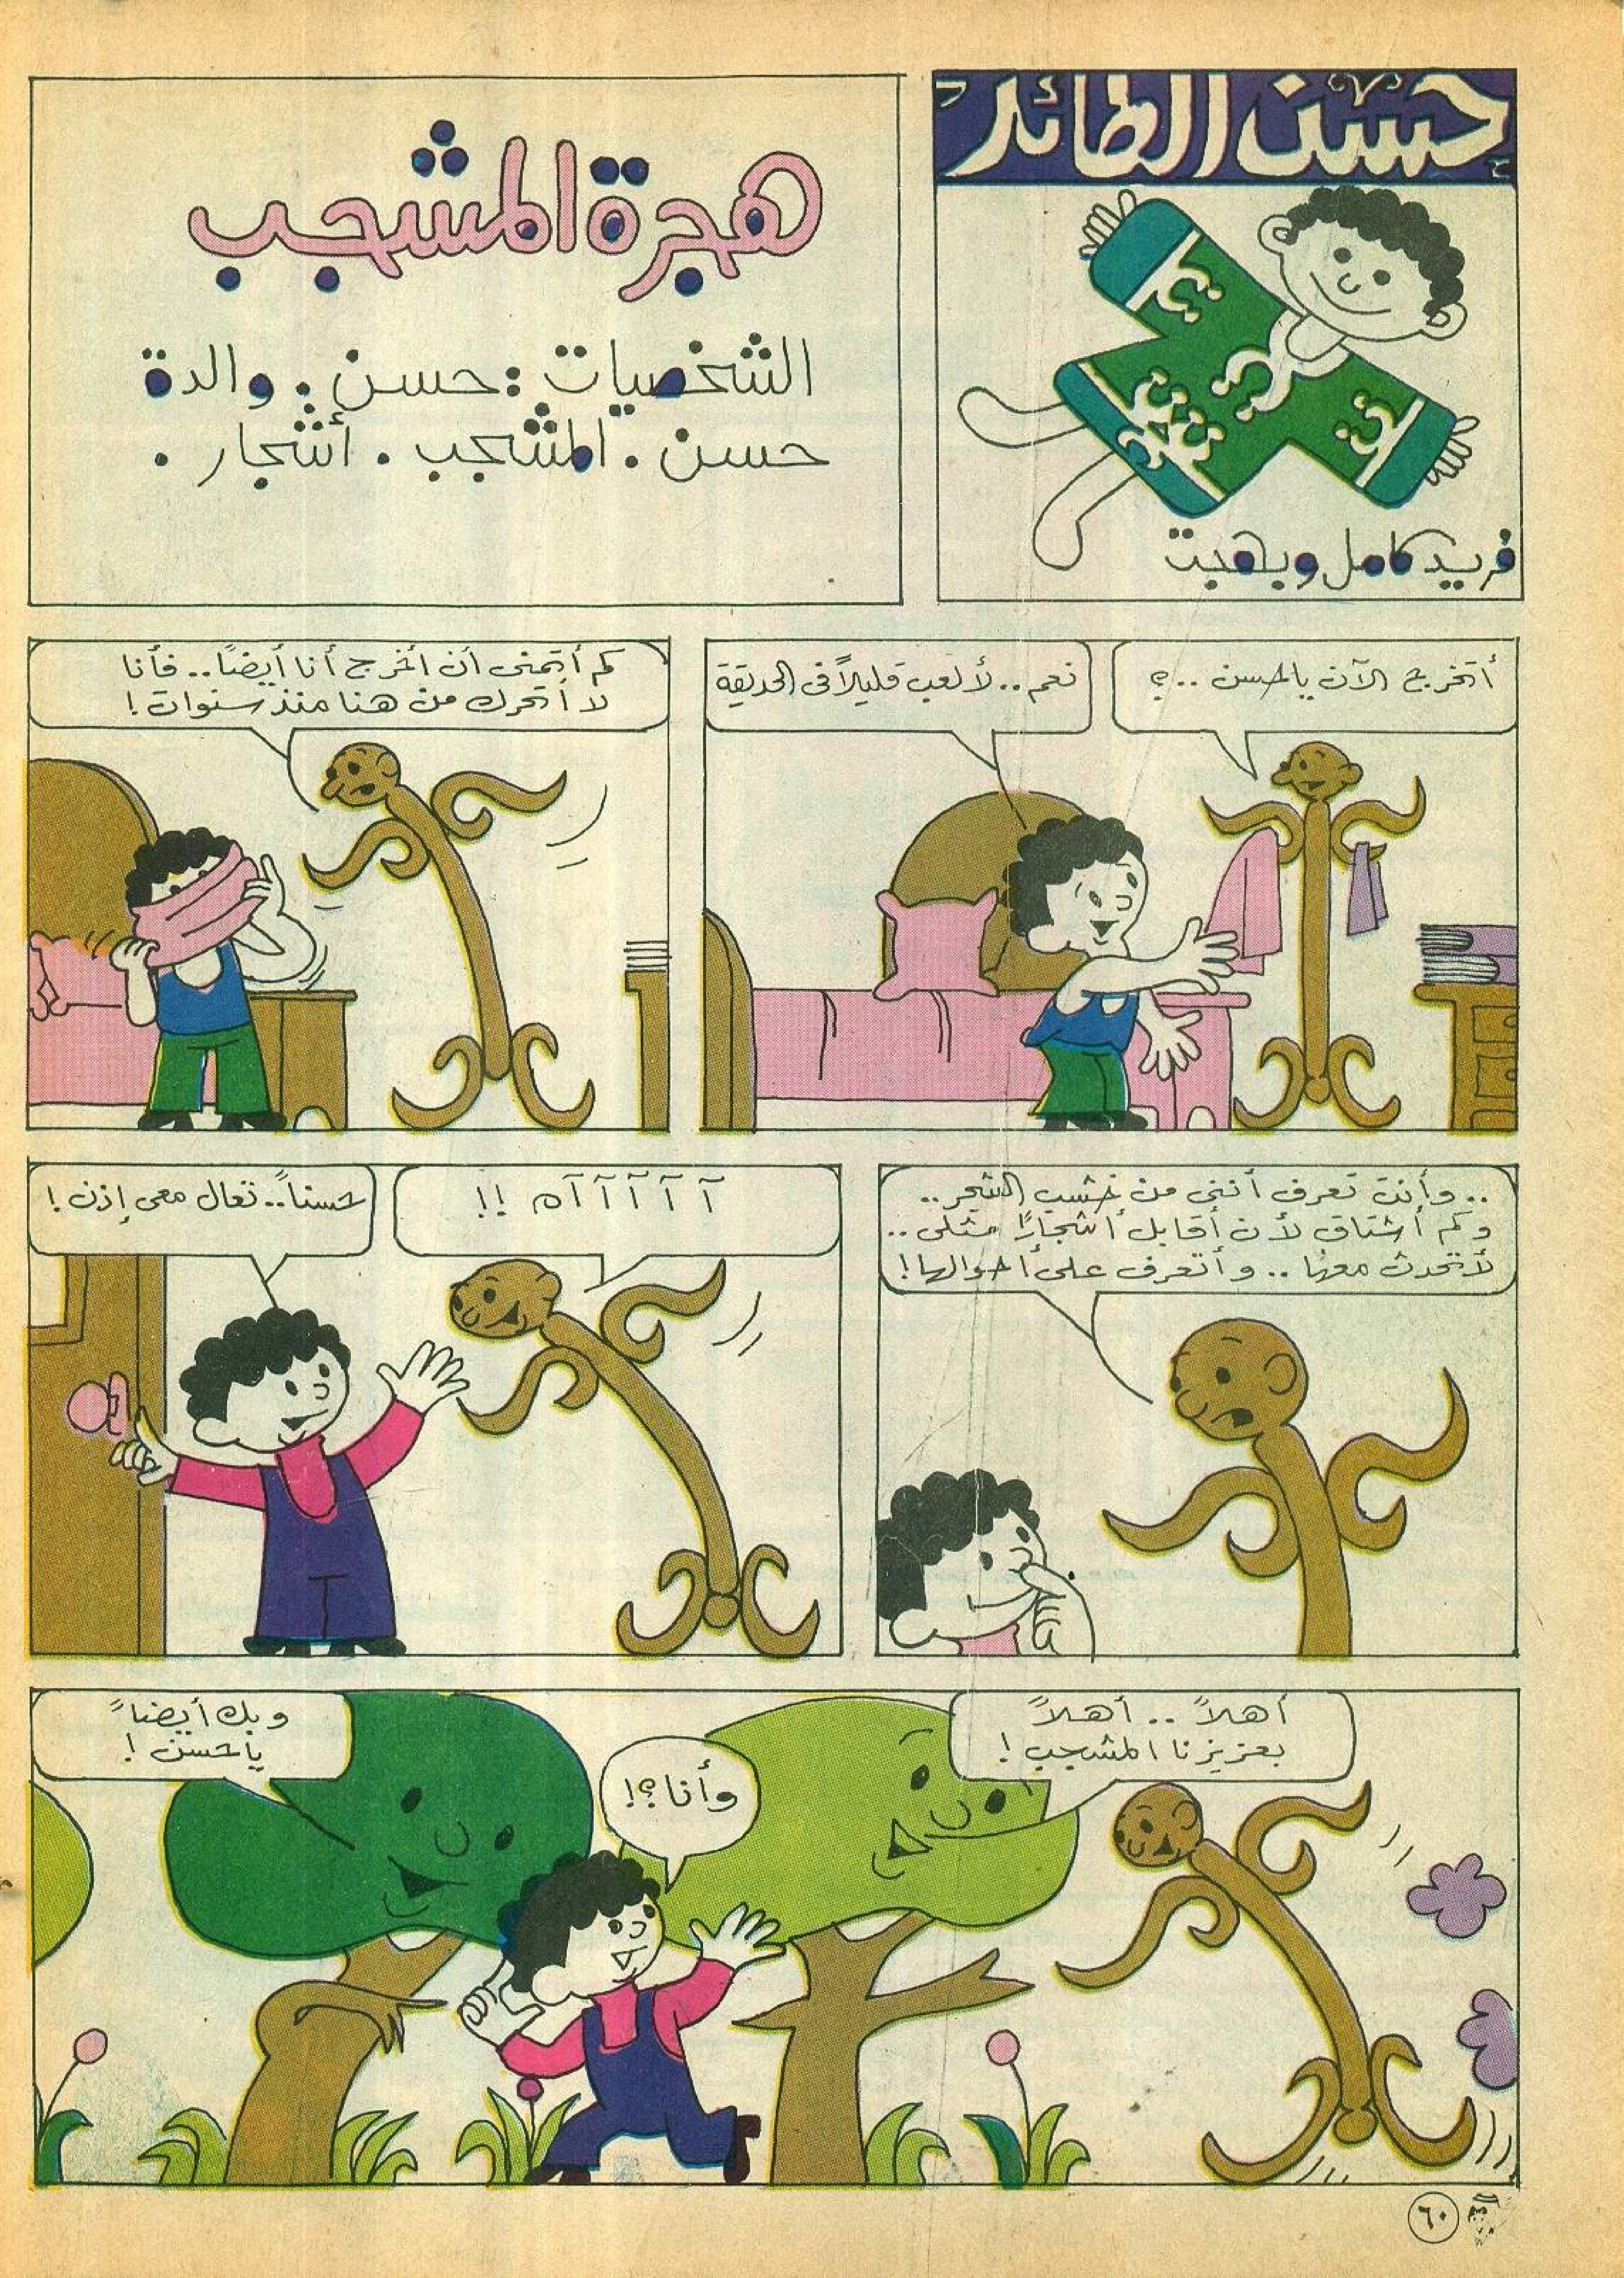 حسن الطائر
فريد كامل وبهجت
هجرة المشجب
الشخصيات : حسن . والدة
حسن . المشجب . أشجار .
أتخرج الآن ياحسن ..؟
نعم .. لألعب قليلاً فى الحديقة
كم أتمنى أن أخرج أنا أيضاً .. فأنا
لا أتحرك من هنا منذ سنوات !
.. وأنت تعرف أننى من خشب الشجر ..
وكم أشتاق لأن أقابل أشجارًا مثلى ..
لأتحدث معها .. وأتعرف على أحوالها !
آ آ آ آ آ آه !!
حسناً .. تعال معى إذن !
أهلاً .. أهلاً
بعزيزنا المشجب !
وأنا ؟!
وبك أيضاً
ياحسن !
٦٠